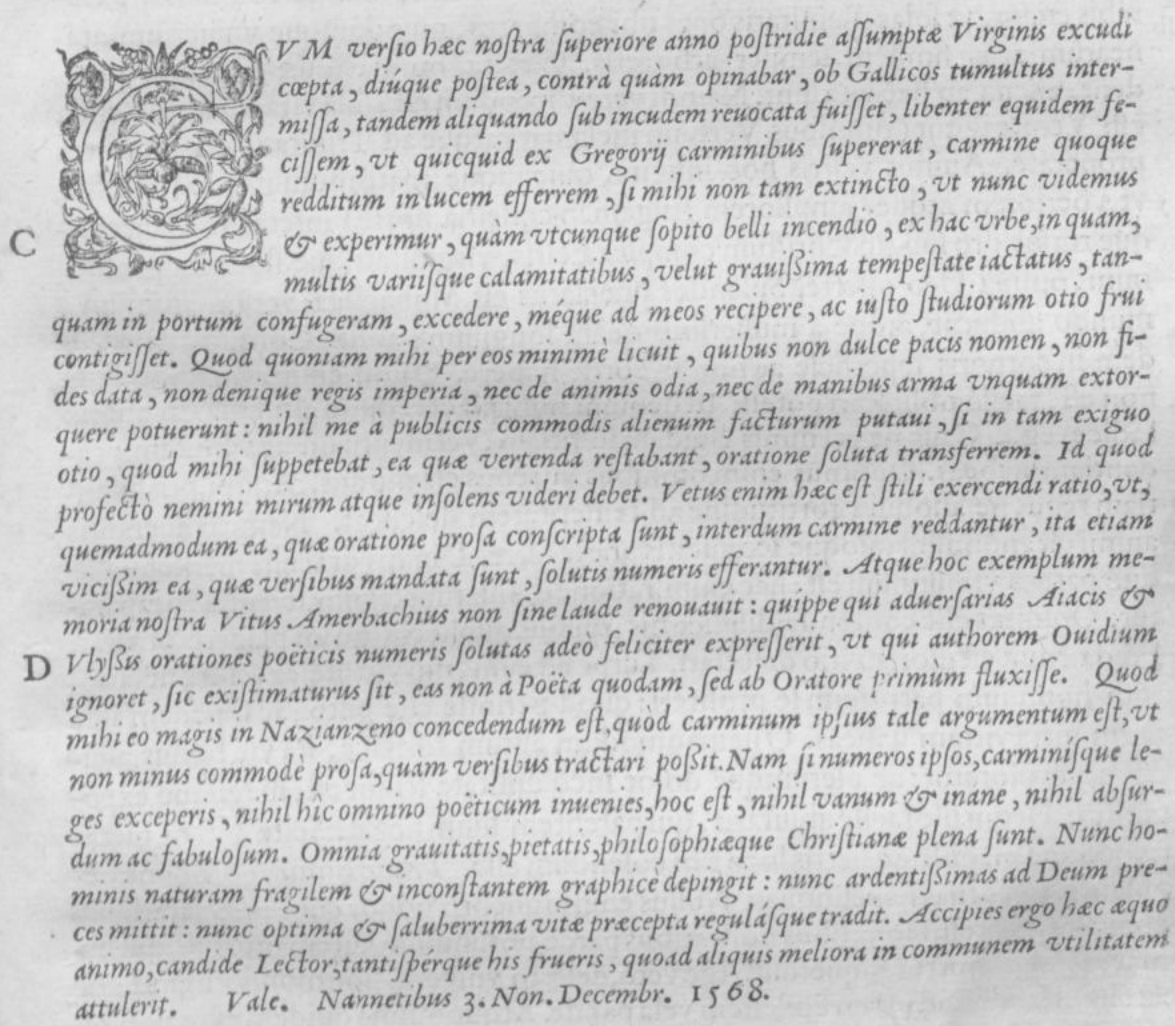 CVM verſio hæc noſtra ſuperiore anno poſtridie aſſumptæ Virginis excudi
cœpta, diúque poſtea, contrà quàm opinabar, ob Gallicos tumultus inter-
miſſa, tandem aliquando ſub incudem reuocata fuiſſet, libenter equidem fe-
ciſſem, vt quicquid ex Gregorij carminibus ſupererat, carmine quoque
redditum in lucem efferrem, ſi mihi non tam extincto, vt nunc videmus
C & experimur, quàm vtcunque ſopito belli incendio, ex hac vrbe, in quam,
multis variiſque calamitatibus, velut grauiſſima tempeſtate iactatus, tan-
quam in portum confugeram, excedere, méque ad meos recipere, ac iuſto ſtudiorum otio frui
contigiſſet. Quod quoniam mihi per eos minimè licuit, quibus non dulce pacis nomen, non fi-
des data, non denique regis imperia, nec de animis odia, nec de manibus arma vnquam extor-
quere potuerunt: nihil me à publicis commodis alienum facturum putaui, ſi in tam exiguo
otio, quod mihi ſuppetebat, ea quæ vertenda reſtabant, oratione ſoluta transferrem. Id quod
profectò nemini mirum atque inſolens videri debet. Vetus enim hæc eſt ſtili exercendi ratio, vt,
quemadmodum ea, quæ oratione proſa conſcripta ſunt, interdum carmine reddantur, ita etiam
viciſſim ea, quæ verſibus mandata ſunt, ſolutis numeris efferantur. Atque hoc exemplum me-
moria noſtra Vitus Amerbachius non ſine laude renouauit: quippe qui aduerſarias Aiacis &
D Vlyſſis orationes poëticis numeris ſolutas adeò feliciter expreſſerit, vt qui authorem Ouidium
ignoret, ſic exiſtimaturus ſit, eas non à Poëta quodam, ſed ab Oratore primùm fluxiſſe. Quod
mihi eo magis in Nazianzeno concedendum eſt, quòd carminum ipſius tale argumentum eſt, vt
non minus commodè proſa, quàm verſibus tractari poſſit. Nam ſi numeros ipſos, carminíſque le-
ges exceperis, nihil hîc omnino poëticum inuenies, hoc eſt, nihil vanum & inane, nihil abſur-
dum ac fabuloſum. Omnia grauitatis, pietatis, philoſophiæque Chriſtianæ plena ſunt. Nunc ho-
minis naturam fragilem & inconſtantem graphicè depingit: nunc ardentiſſimas ad Deum pre-
ces mittit: nunc optima & ſaluberrima vitæ præcepta reguláſque tradit. Accipies ergo hæc æquo
animo, candide Lector, tantiſpérque his frueris, quoad aliquis meliora in communem vtilitatem
attulerit. Vale. Nannetibus 3. Non. Decembr. 1568.